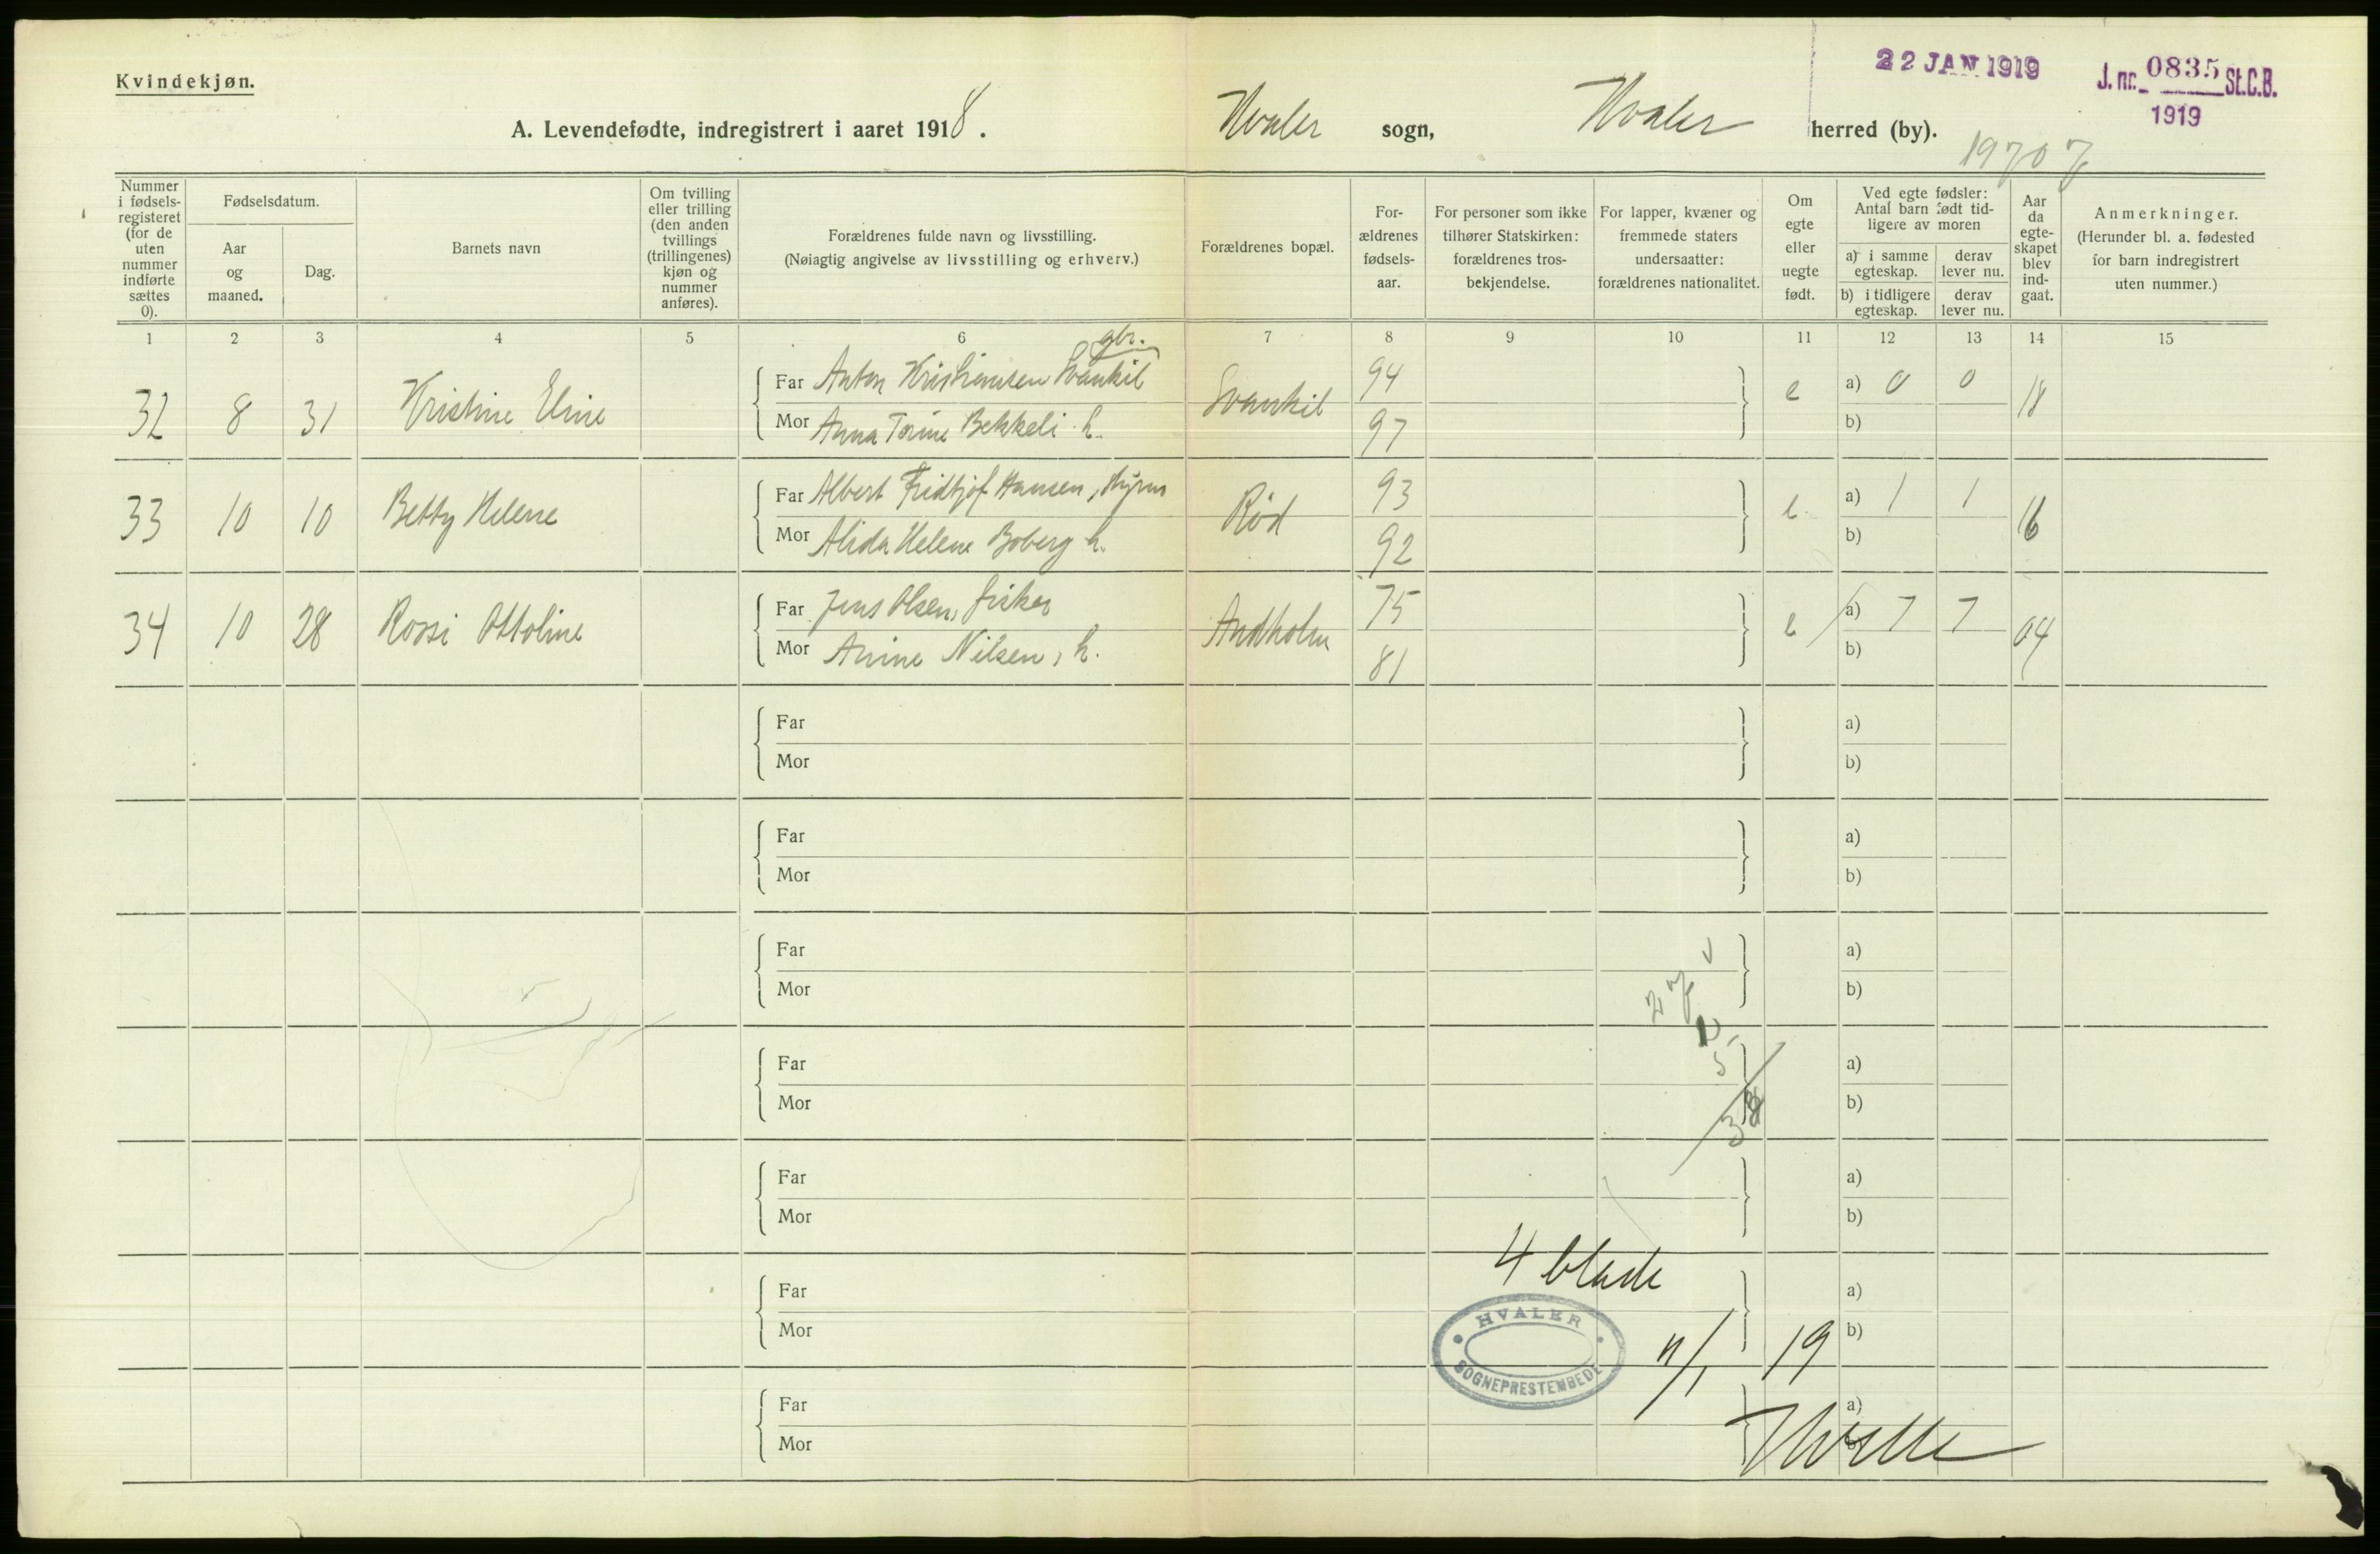 Kvindekjøn.
22 JAN 1919
J. nr. 0835 St.C.B.
1919
A. Levendefødte, indregistrert i aaret 1918.
Hvaler sogn, Hvaler herred (by).
Nummer i fødsels-registeret (for de uten nummer indførte sættes 0).
Fødselsdatum.
Aar og maaned.
Dag.
Barnets navn
Om tvilling eller trilling (den anden tvillings (trillingenes) kjøn og nummer anføres).
Forældrenes fulde navn og livsstilling.
(Nøiagtig angivelse av livsstilling og erhverv.)
Forældrenes bopæl.
For-ældrenes fødsels-aar.
For personer som ikke tilhører Statskirken: forældrenes tros-bekjendelse.
For lapper, kvæner og fremmede staters undersaatter: forældrenes nationalitet.
Om egte eller uegte født.
Ved egte fødsler: Antal barn født tid-ligere av moren
a) i samme egteskap.
derav lever nu.
b) i tidligere egteskap.
derav lever nu.
Aar da egte-skapet blev ind-gaat.
Anmerkninger.
(Herunder bl. a. fødested for barn indregistrert uten nummer.)
1 2 3 4 5 6 7 8 9 10 11 12 13 14 15
gbr.
32 8 31 Kristine Eline Far Anton Kristiansen Svankil Svankil 94 e a) 0 0 18
Mor Anna Torine Bekkeli h. 97 b)
33 10 10 Betty Helene Far Albert Fridtjof Hansen, Rød 93 e. a) 1 1 16
Mor Alida Helene Boberg h. 92 b)
34 10 28 Rossi Ottoline Far Jens Olsen, fisker Andholm 75 e a) 7 7 04
Mor Anine Nilsen, h. 81 b)
Far a)
Mor b)
Far a)
Mor b)
Far a)
Mor b)
Far a)
Mor b)
Far a)
Mor b)
4 blade
Far a)
Mor b)
HVALER
SOGNEPRESTEMBEDE
11/1 19
Far a)
Mor b)